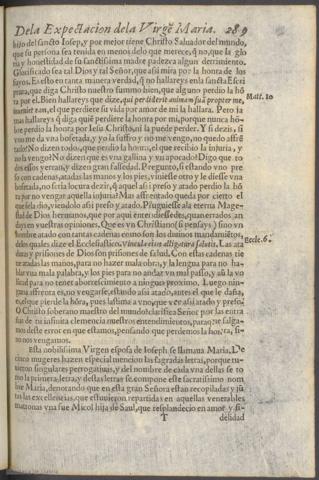 De la Expectacion de la Virgẽ Maria. 289
hijo del sancto Iosep, y por mejor tiene Christo Saluador del mundo,
que su persona sea tenida en menos delo que merece, q̃ no, que la glo
ria y honestidad de su sanctissima madre padezca algun detrimento.
Glorificado sea tal Dios y tal Señor, que assi mira por la honta de los
suyos. Es esto en tanta manera verdad, q̃ no hallareys enla sancta Escri
ptura, que diga Christo nuestro summo bien, que alguno perdio la hõ
ra por el. Bien hallareys que dize, qui perdiderit animam suã propter me,
Matt. 10
inueniet eam, el que perdiere su vida por amor de mi la hallara. Pero ja
mas hallareys q̃ diga quiẽ perdiere la honra por mi, porque nunca hõ-
bre perdio la honra por Iesu Christo, ni la puede perder. Y si dezis, si
vno me da vna bofetada, y yo la suffro y no me vengo, no quedo affrẽ
tado? No dizen todos, que perdio la honra, el que recibio la injuria, y
no la vengo? No dizen que es vna gallina y vn apocado? Digo que to
dos essos yerran, y dizen gran falsedad. Pregunto, si estando vno pre
so con cadenas, atadas las manos y los pies, viniesse otro y le diesse vna
bofetada, no seria locura dezir, q̃ aquel assi preso y atado perdio la hõ
ra por no vengar aquella injuria? Mas affrentado queda por cierto el
que se la dio, viendolo assi preso y atado. Pluguiesse ala eterna Mage
stad de Dios hermanos, que por aqui entendiessedes, quan errados an
days en vuestras opiniones. Que es vn Christiano (si pensays) sino vn
hombre atado con tantas cadenas como son los diuinos mandamiẽtos,
delos quales dize el Ecclesiastico. Vincula eius alligatura salutis. Las ata
Eccle. 6.
duras y prisiones de Dios son prisiones de salud. Con estas cadenas tie
ne atadas las manos, para no hazer mala obra, y la lengua para no ha-
blar vna mala palabra, y los pies para no andar vn mal passo, y aũ la vo
luntad para no tener aborrescimiento a ningun proximo. Luego nin-
guna affrenta es, no vengarse, estando assi atado, antes el que le dañ a,
es, el que pierde la hõra, pues lastima a vno, que vee assi atado y preso.
O Christo soberano maestro del mundo! clarifica Señor por las entra
ñas de tu infinita clemencia nuestros entendimientos, paraq̃ se salga-
mos deste error en que estamos, pensando que perdemos la hõra, si-
no nos vengamos.
Esta nobilissima Virgen esposa de Ioseph se llamaua Maria. De
cinco mugeres hazen especial mencion las sagradas letras, porque tu-
uieron singulares perrogatiuas, y del nombre de cada vna dellas se to
mo la primera letra, y destas letras se compone este sacratissimo nom
bre Maria, denotando que en esta gran Señora estan recopiladas y jũ
tas las excellencias, que estuuieron repartidas en aquellas venerables
matronas vna fue Micol hija de Saul, que resplandecio en amor y fi-
T
delidad